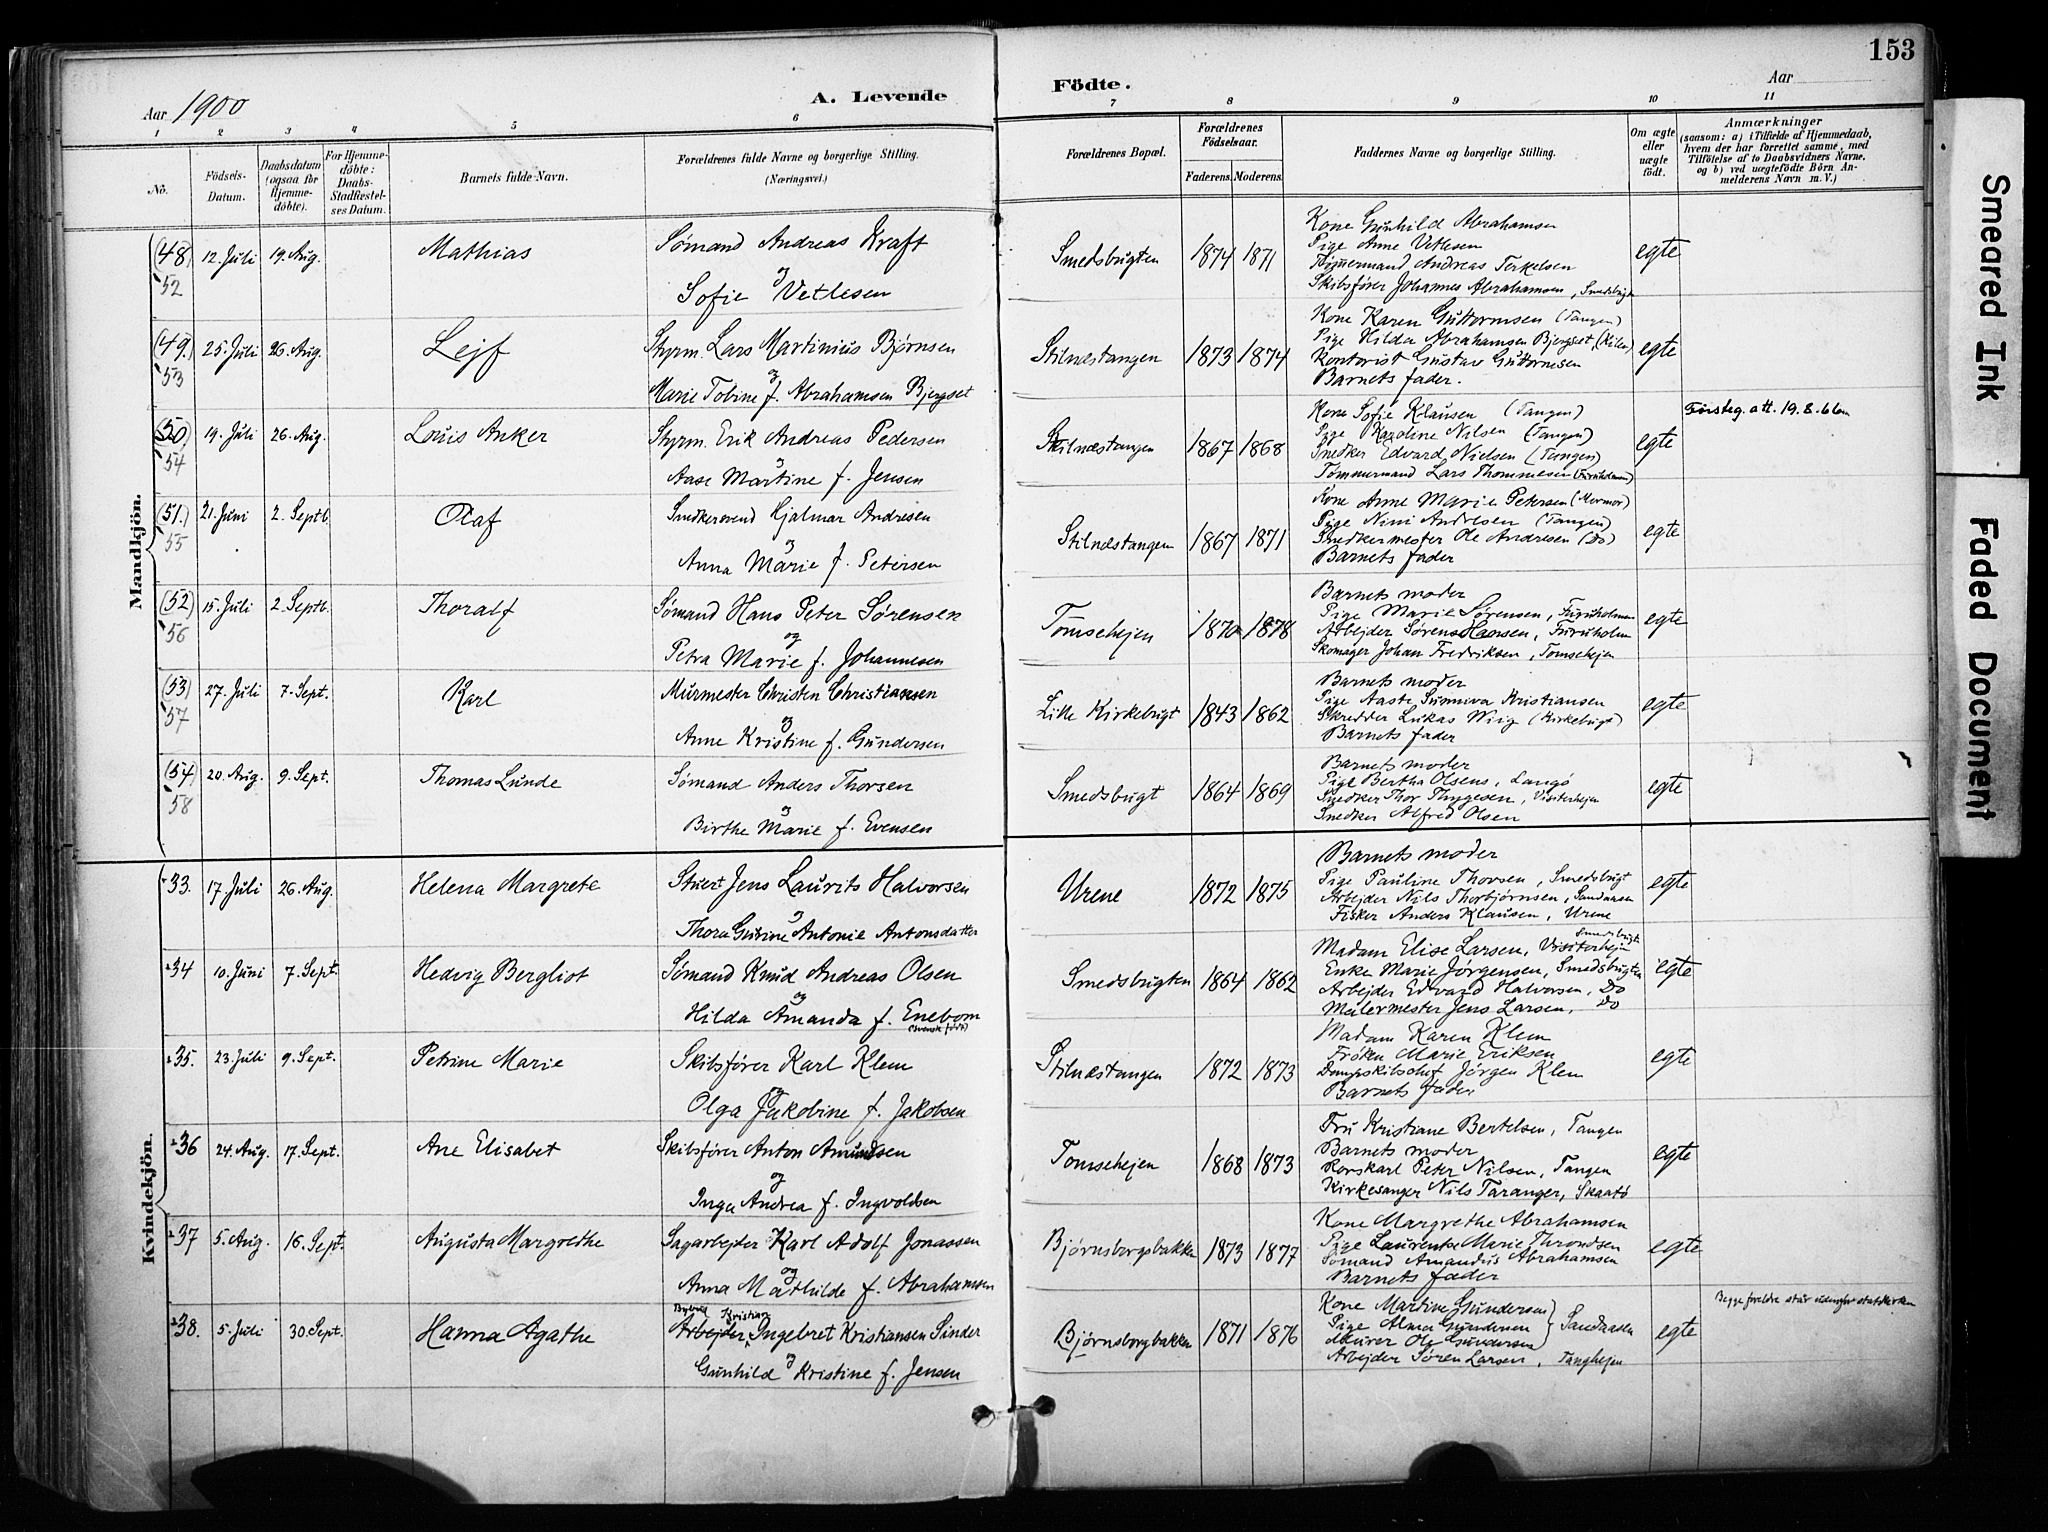 153
Aar 1900
A. Levende Födte.
Aar
1 2 3 4 5 6 7 8 9 10 11
No.
Födsels-Datum.
Daabsdatum (ogsaa for Hjemme-döbte).
For Hjemme-döbte: Daabs-Stadfæstel-ses Datum.
Barnets fulde Navn.
Forældrenes fulde Navne og borgerlige Stilling. (Næringsvei.)
Forældrenes Bopæl.
Forældrenes Födselsaar.
Faderens. Moderens.
Faddernes Navne og borgerlige Stilling.
Om ægte eller uægte födt.
Anmærkninger
(saasom: a) i Tilfælde af Hjemmedaab, hvem der har forrettet samme, med Tilföielse af to Daabsvidners Navne. og b) ved uægtefödte Börn An-melderens Navn m. V.)
Mandkjön.
(48) 52 12. Juli 19. Aug. Mathias
Sømand Andreas Kraft
og
Sofie Vetlesen
Smedsbugten 1874 1871
Kone Gunhild Abrahamsen
Pige Anne Vetlesen
Tømmermand Andreas Terkelsen
Skibsfører Johannes Abrahamsen, Smedsbugten
egte
(49) 53 25. Juli 26. Aug. Lejf
Styrm. Lars Martinius Bjørnsen
og
Marie Tobine f. Abrahamsen Bjergset
Stilnæstangen 1873 1874
Kone Karen Guttormsen (Tangen)
Pige Hilda Abrahamsen Bjergset, (Kilen)
Kontorist Gustav Guttormsen
Barnets fader.
egte
(50) 54 19. Juli 26. Aug. Louis Anker
Styrm. Erik Andreas Pedersen
og
Aase Martine f. Jensen
Stilnæstangen 1867 1868
Kone Sofie Klausen (Tangen)
Pige Karoline Nilsen (Tangen)
Snedker Edvard Nielsen (Tangen)
Tømmermand Lars Thommesen (Furuholmen)
egte
Førsteg. att. 19.8.61
(51.) 55 21. Juni 2. Septb. Olaf
Snedkersvend Hjalmar Andresen
og
Anna Marie f. Petersen
Stilnæstangen 1867 1871
Kone Anne Marie Petersen (Mormor)
Pige Nini Andresen (Tangen)
Snedkermester Ole Andresen (Do)
Barnets fader
egte
(52) 56 15. Juli 2. Septb. Thoralf
Sømand Hans Peter Sørensen
og
Petra Marie f. Johannesen
Tomsehejen 1870 1878
Barnets moder
Pige Marie Sørensen, Furuholmen
Arbejder Sørens Hansen, Furuholm
Skomager Johan Fredriksen, Tomsehejen
egte
(53) 57 27. Juli 7. Sept. Karl
Murmester Christen Christiansen
og
Anne Kristine f. Gundersen
Lille Kirkebugt 1843 1862
Barnets moder
Pige Aaste Sunniva Kristiansen
Skredder Lukas Wiig (Kirkebugt)
Barnets fader
egte
(54) 58 20. Aug. 9. Sept. Thomas Lunde
Sømand Anders Thorsen
og
Birthe Marie f. Evensen
Smedsbugt 1864 1869
Barnets moder
Pige Bertha Olsens, Langø
Snedker Thor Thygesen, Visiterhejen
Snedker Alfred Olsen
egte
Kvindekjön.
33. 17. Juli 26. Aug. Helena Margrete
Stuert Jens Laurits Halvorsen
og
Thora Gurine Antonie Antonsdatter
Urene 1872 1875
Barnets moder
Pige Pauline Thovsen, Smedsbugt
Arbejder Nils Thorbjørnsen, Sandaasen
Fisker Anders Klausen, Urene
egte
34 10. Juni 7. Sept. Hedvig Bergliot
Sømand Knud Andreas Olsen
og
Hilda Amanda f. Enebom
(Svensk født)
Smedsbugten 1864 1862
Smedsbugt
Madam Elise Larsen, Visiterhejen
Enke Marie Jørgensen, Smedsbugten
Arbejder Edvard Halvorsen, Do
Malermester Jens Larsen, Do
egte
35. 23. Juli 9. Sept. Petrine Marie
Skibsfører Karl Klem
og
Olga Jakobine f. Jakobsen
Stilnæstangen 1872 1873
Madam Karen Klem
Frøken Marie Eriksen
Dampskibschef Jörgen Klem
Barnets fader
egte
36 24. Aug. 17. Sept. Ane Elisabet
Skibsfører Anton Amundsen
og
Inga Andrea f. Ingvoldsen
Tomsehejen 1868 1873
Fru Kristiane Bertelsen, Tangen
Barnets moder
Rorskarl Peter Nilsen, Tangen
Kirkesanger Nils Taranger, Skaatö
egte
37 5. Aug. 16. Sept. Augusta Margrethe
Sagarbejder Karl Adolf Jonassen
og
Anna Mathilde f. Abrahamsen
Bjørnsborgsbakken 1873 1877
Kone Margrethe Abrahamsen
Pige Laurentse Marie Throndsen
Sømand Amandus Abrahamsen
Barnets fader
egte
38. 5. Juli 30. Sept. Hanna Agathe
Kristian
Arbejder, Ingebret Kristiansen Sinder
og
Gunhild Kristine f. Jensen
Bjørnsborgbakken 1871 1876
Kone Martine Gundersen
Pige Alma Gundersen
Murer Ole Gundersen } Sandaasen
Arbejder Søren Larsen, Tanghejen
egte
Begge foreldre staar udenfor statskirken
Smeared Ink
Faded Document